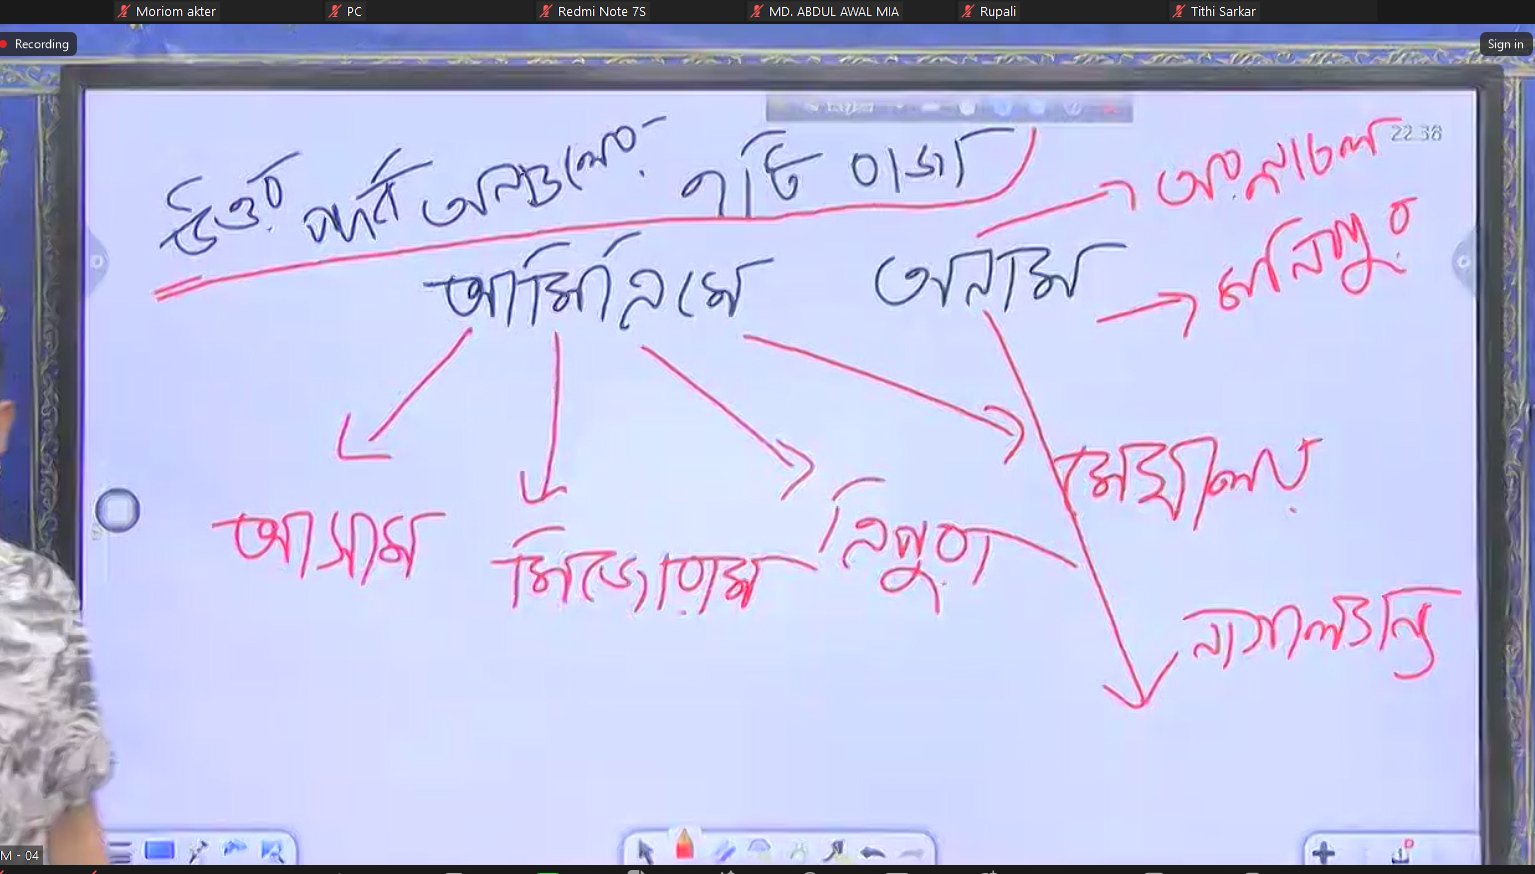 Moriom akter PC Redmi Note 7S MD. ABDUL AWAL MIA Rupali Tithi Sarkar
Recording Sign in
22 38
উত্তর পূর্ব অঞ্চলের ৭টি রাজ্য
আমিত্রিমে অনাম
অরুনাচল
মনিপুর
আসাম মিজোরাম ত্রিপুরা মেঘালয়
নাগাল্যান্ড
M - 04